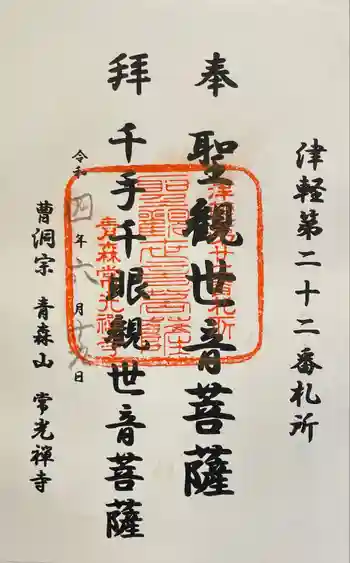 津軽第二十二番札所
奉
聖観世音菩薩
拝
千手千眼観世音菩薩
令和四年六月
日
曹洞宗 青森山 常光禅寺
聖観世音菩薩
青森常光禅寺